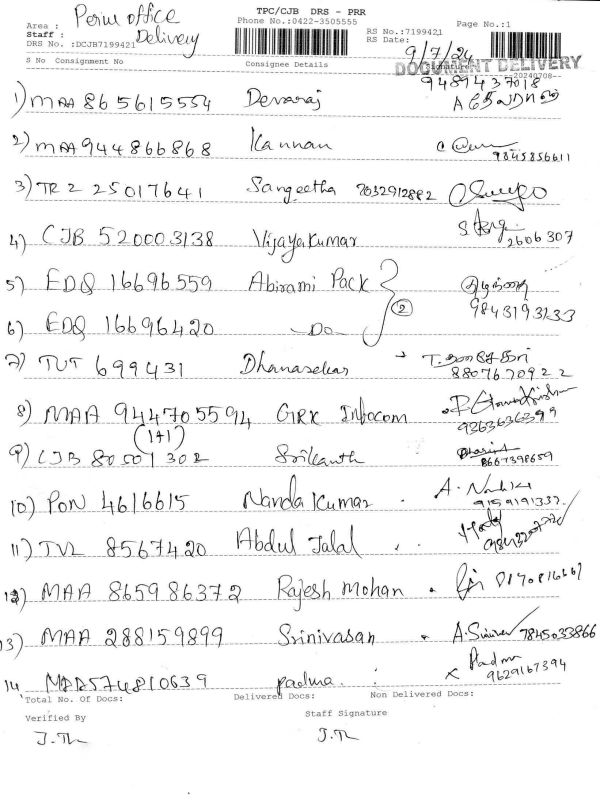 TPC/CJB DRS - PRR
Area : Perur office
Phone No.:0422-3505555
RS No.:7199421
Page No.:1
Staff : Delivery
RS Date: 9/7/24
DRS No. :DCJB7199421
DOCUMENT DELIVERY
S No Consignment No Consignee Details Signature
-20240708-
9489437018
1) MAA 865615554 Devaraj A தேவராஜ்
2) MAA 944866868 Kannan
9845856611
3) TR2 25017641 Sangeetha 7032912882
4) CJB 520003138 Vijayakumar
2606307
5) EDQ 16696559 Abirami Pack
9843193233
6) EDQ 16696420 -Do- (2)
7) TUT 699431 Dhanasekar → T. தனசேகர்
8807670922
8) MAA 944705594 GRK Infocom
9363636399
(1+1)
9) CJB 80501302 Srikanth
8667398659
10) PON 4616615 Nanda Kumar A. Nandi K
9159191337
11) TVL 8567420 Abdul Jalal
12) MAA 865986372 Rajesh Mohan
13) MAA 288159899 Srinivasan 7845033866
14 MAA574810639 padma. Padma
9629167394
Total No. Of Docs: Delivered Docs: Non Delivered Docs:
Verified By Staff Signature
J.Th J.Th